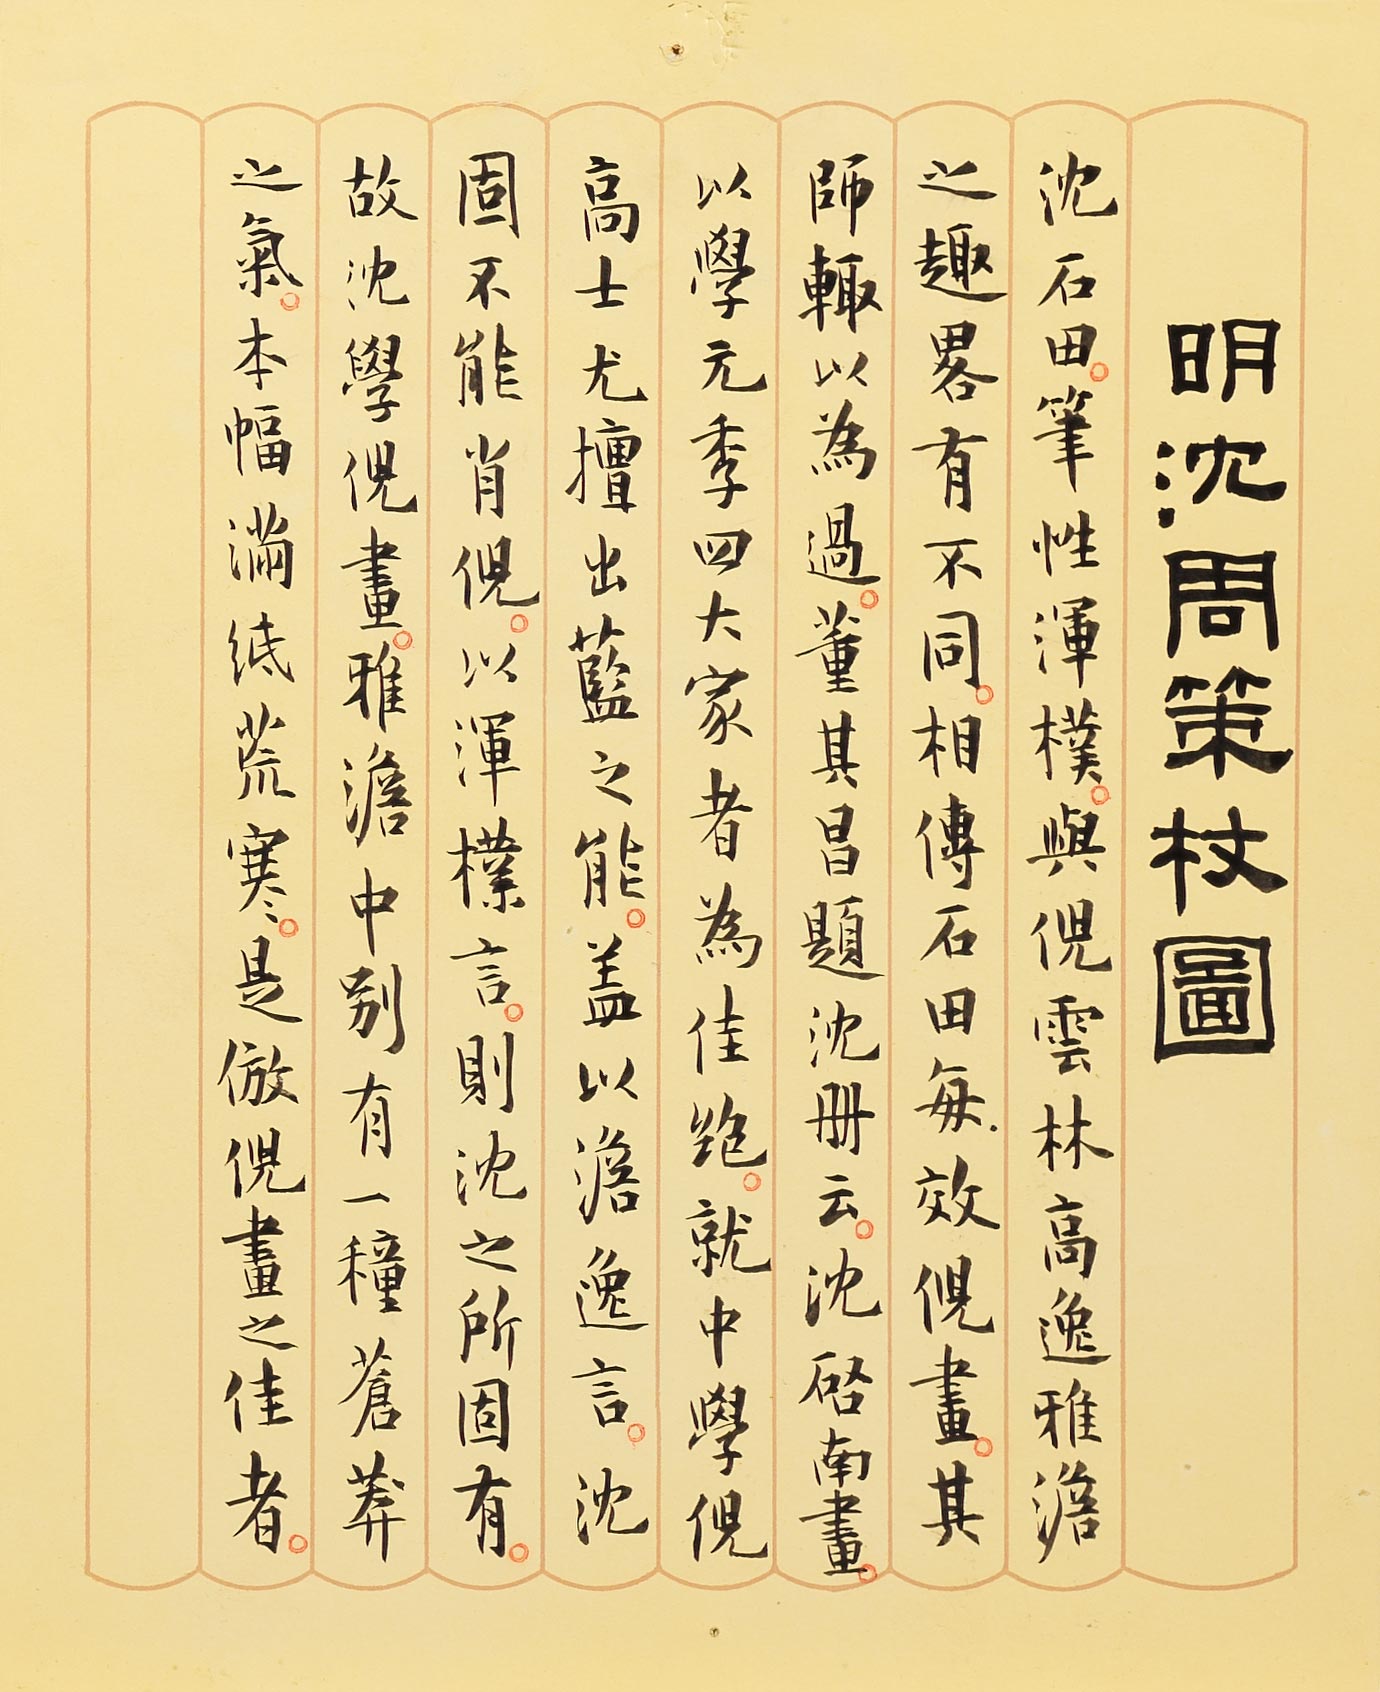 明沈周策杖圖
沈石田。筆性渾樸。與倪雲林高逸雅澹
之趣畧有不同。相傳石田每效倪畫。其
師輒以為過。董其昌題沈册云。沈啓南畫。
以學元季四大家者為佳絕。就中學倪
高士尤擅出藍之能。盖以澹逸言。沈
固不能肖倪。以渾樸言。則沈之所固有。
故沈學倪畫。雅澹中別有一種蒼莽
之氣。本幅滿紙荒寒。是倣倪畫之佳者。